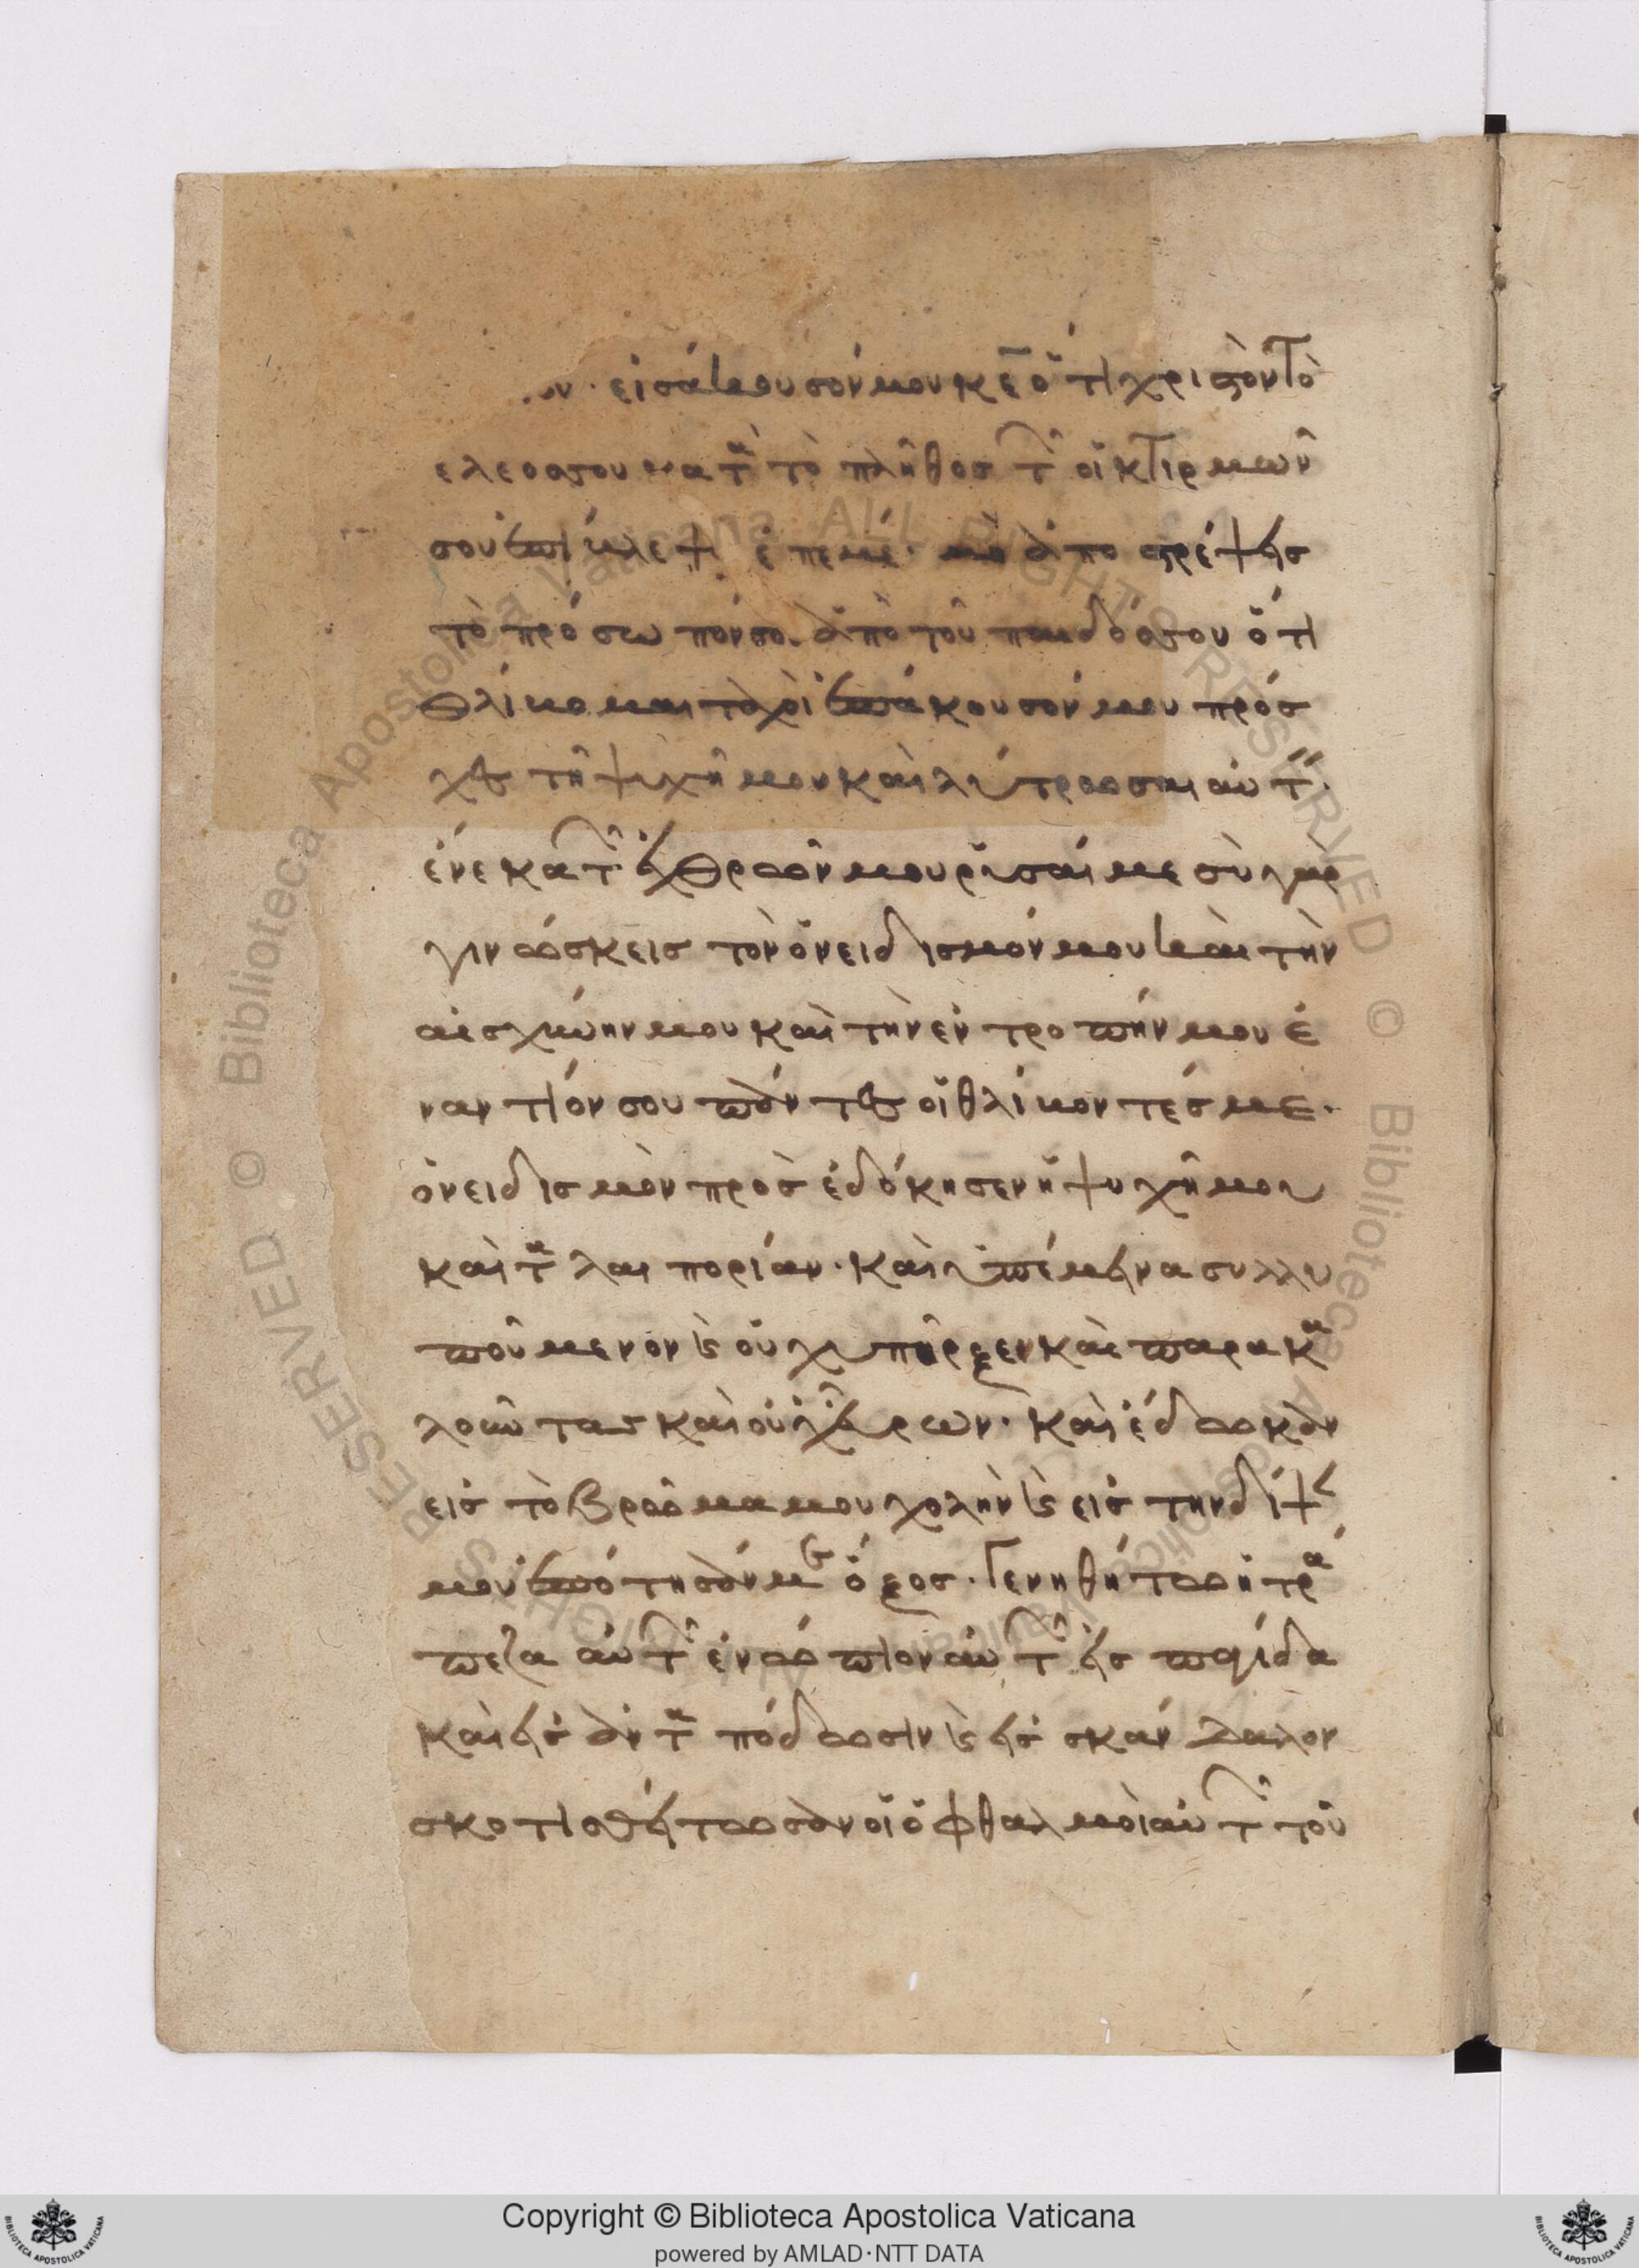 εἰσάκουσόν μου κε ὅτι χριστὸν τὸ
ελεος σου κατὰ τὸ πλῆθος τῶν οἰκτιρμῶν
σου ἐπίβλεψ ἐπεμέ· μὴ ἀποστρέψης
τὸ πρόσωπόν σο. ἀπὸ τοῦ παιδός σου ὅτι
θλίβομαι ταχὺ ἐπάκουσόν μου πρόσ
χες τῆ ψυχῆ μου καὶ λύτρωσαι αὐτήν·
ἕνεκα τῶν ἐχθρῶν μου ρῦσαί με σὺ γὰρ
γινώσκεις τὸν ὀνειδισμόν μου καὶ τὴν
αἰσχύνην μου καὶ τὴν ἐντροπήν μου ἐ
ναντίον σου πάντες οἱ θλίβοντές με·
ὀνειδισμὸν προσεδόκησεν ἡ ψυχή μου
καὶ ταλαιπορίαν· καὶ ὑπέμεινα συλλυ
πούμενον καὶ οὐχ ὑπῆρξεν καὶ παρακα
λοῦντας καὶ οὐχ εὗρων· καὶ ἔδωκαν
εἰς τὸ βρῶμα μου χολὴν καὶ εἰς τὴν δίψαν
μου ἐπότησάν με ὄξος· Γενηθήτω ἡ τρά
πεζα αὐτῶν ἐνώπιον αὐτῶν εἰς παγίδα
καὶ εἰς ἀνταπόδωσιν καὶ εἰς σκάνδαλον
σκοτισθήτωσαν οἱ ὀφθαλμοὶ αὐτῶν τοῦ
Copyright © Biblioteca Apostolica Vaticana
powered by AMLAD·NTT DATA